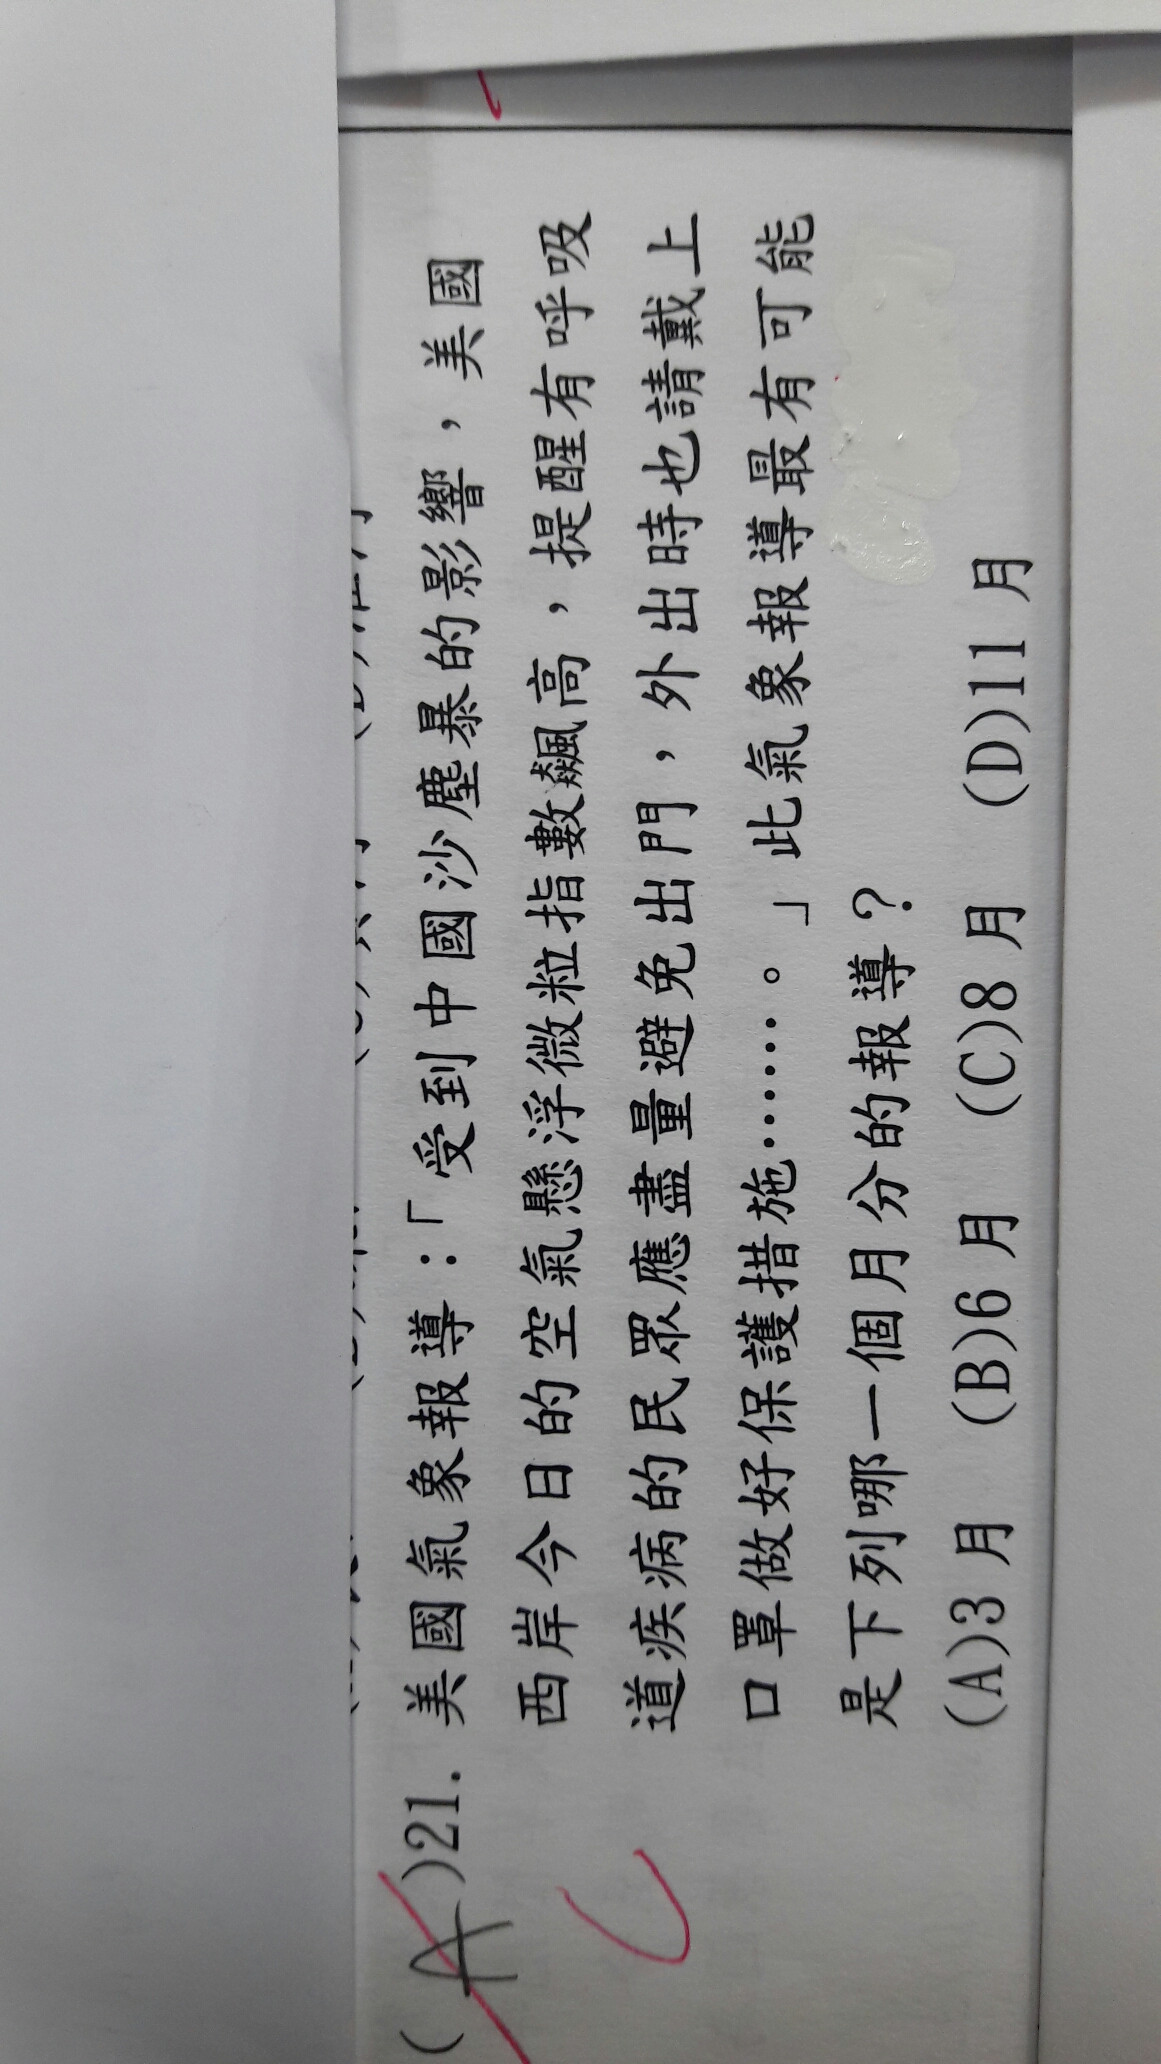 (A)21. 美國氣象報導：「受到中國沙塵暴的影響，美國
西岸今日的空氣懸浮微粒指數飆高，提醒有呼吸
道疾病的民眾應盡量避免出門，外出時也請戴上
口罩做好保護措施……。」此氣象報導最有可能
是下列哪一個月分的報導？
(A)3 月 (B)6 月 (C)8 月 (D)11 月
C